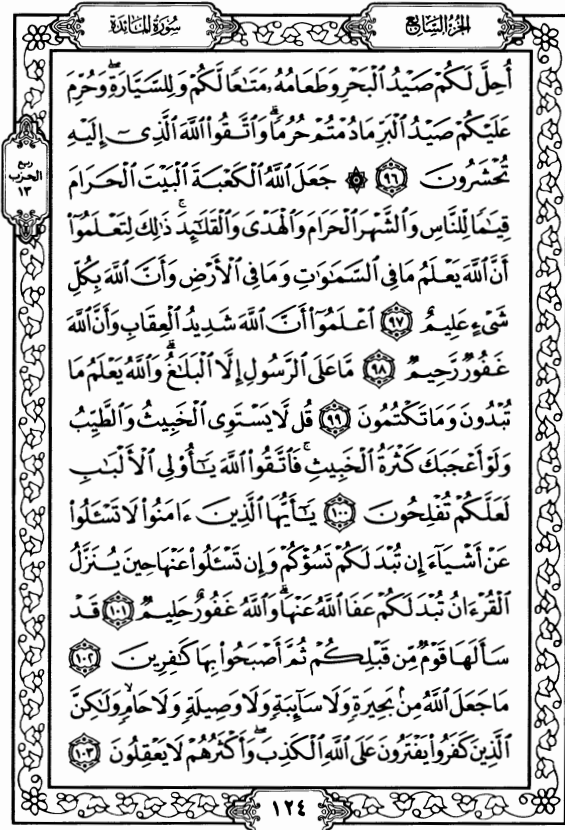 الجزء السابع
سورة المائدة
أُحِلَّ لَكُمْ صَيْدُ ٱلْبَحْرِ وَطَعَامُهُۥ مَتَٰعًا لَّكُمْ وَلِلسَّيَّارَةِۖ وَحُرِّمَ
عَلَيْكُمْ صَيْدُ ٱلْبَرِّ مَا دُمْتُمْ حُرُمًاۗ وَٱتَّقُوا۟ ٱللَّهَ ٱلَّذِىٓ إِلَيْهِ
تُحْشَرُونَ ۝٩٦ ۞ جَعَلَ ٱللَّهُ ٱلْكَعْبَةَ ٱلْبَيْتَ ٱلْحَرَامَ
قِيَٰمًا لِّلنَّاسِ وَٱلشَّهْرَ ٱلْحَرَامَ وَٱلْهَدْىَ وَٱلْقَلَٰٓئِدَۚ ذَٰلِكَ لِتَعْلَمُوٓا۟
أَنَّ ٱللَّهَ يَعْلَمُ مَا فِى ٱلسَّمَٰوَٰتِ وَمَا فِى ٱلْأَرْضِ وَأَنَّ ٱللَّهَ بِكُلِّ
شَىْءٍ عَلِيمٌ ۝٩٧ ٱعْلَمُوٓا۟ أَنَّ ٱللَّهَ شَدِيدُ ٱلْعِقَابِ وَأَنَّ ٱللَّهَ
غَفُورٌ رَّحِيمٌ ۝٩٨ مَّا عَلَى ٱلرَّسُولِ إِلَّا ٱلْبَلَٰغُۗ وَٱللَّهُ يَعْلَمُ مَا
تُبْدُونَ وَمَا تَكْتُمُونَ ۝٩٩ قُل لَّا يَسْتَوِى ٱلْخَبِيثُ وَٱلطَّيِّبُ
وَلَوْ أَعْجَبَكَ كَثْرَةُ ٱلْخَبِيثِۚ فَٱتَّقُوا۟ ٱللَّهَ يَٰٓأُو۟لِى ٱلْأَلْبَٰبِ
لَعَلَّكُمْ تُفْلِحُونَ ۝١٠٠ يَٰٓأَيُّهَا ٱلَّذِينَ ءَامَنُوا۟ لَا تَسْـَٔلُوا۟
عَنْ أَشْيَآءَ إِن تُبْدَ لَكُمْ تَسُؤْكُمْ وَإِن تَسْـَٔلُوا۟ عَنْهَا حِينَ يُنَزَّلُ
ٱلْقُرْءَانُ تُبْدَ لَكُمْ عَفَا ٱللَّهُ عَنْهَاۗ وَٱللَّهُ غَفُورٌ حَلِيمٌ ۝١٠١ قَدْ
سَأَلَهَا قَوْمٌ مِّن قَبْلِكُمْ ثُمَّ أَصْبَحُوا۟ بِهَا كَٰفِرِينَ ۝١٠٢
مَا جَعَلَ ٱللَّهُ مِنۢ بَحِيرَةٍ وَلَا سَآئِبَةٍ وَلَا وَصِيلَةٍ وَلَا حَامٍۙ وَلَٰكِنَّ
ٱلَّذِينَ كَفَرُوا۟ يَفْتَرُونَ عَلَى ٱللَّهِ ٱلْكَذِبَۖ وَأَكْثَرُهُمْ لَا يَعْقِلُونَ ۝١٠٣
ربع
الحزب
١٣
١٢٤